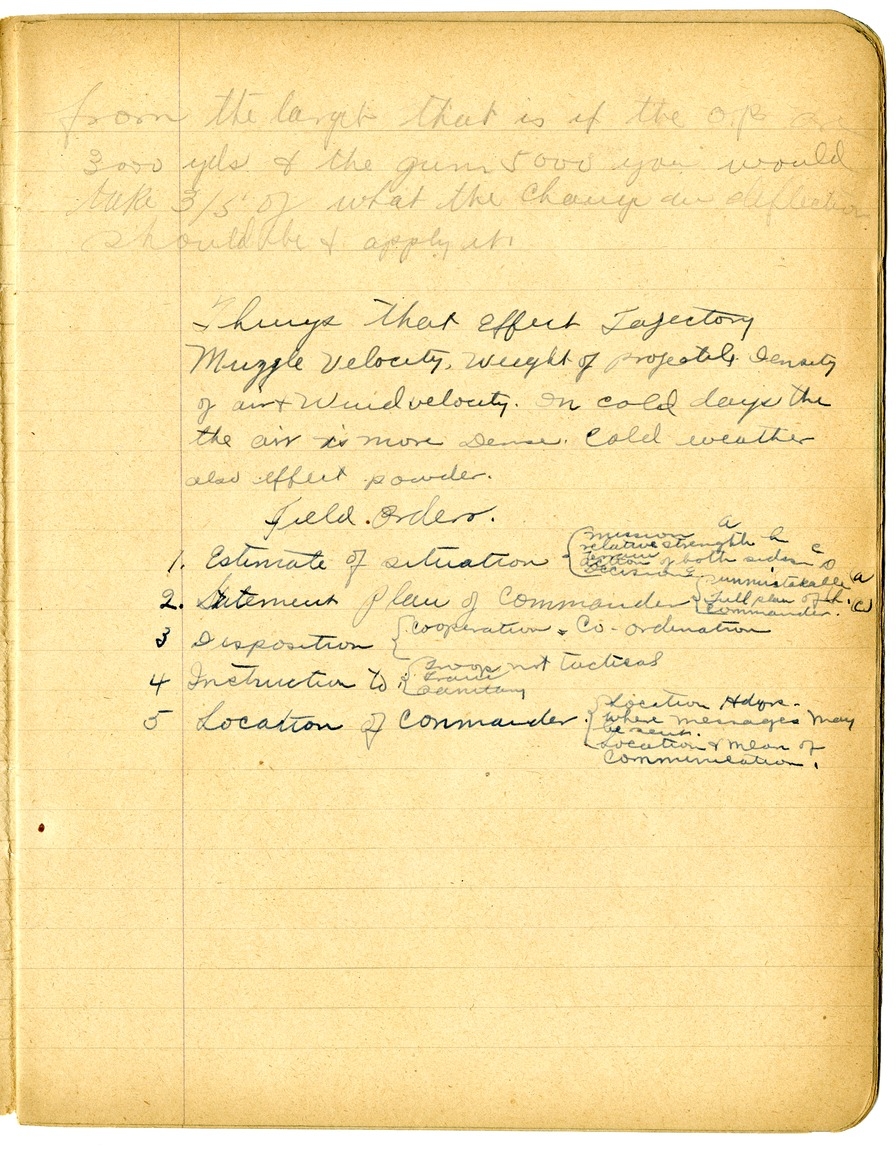 from the target that is if the O.P. are
3000 yds & the guns 5000 you would
take 3/5 of what the change in deflection
should be & apply it.
Things that Effect Tajectory
Muzzle Velocity, Weight of projectile Density
of air & Wind velocity. In cold days the
the air is more Dense. Cold weather
also effect powder.
Field Orders.
1. Estimate of situation
mission a
relative strength b
terrain c
action of both sides D
Decision E
2. Statement Plan of Commander
unmistakable (a
Full plan of b.
Commander. (c)
3 Disposition { Cooperation & Co-ordination
4 Instruction to
Troop not tactical
Train
Sanitary
5 Location of Commander.
Location Hdqrs.
where messages may
be sent.
Location & Mean of
Communication.